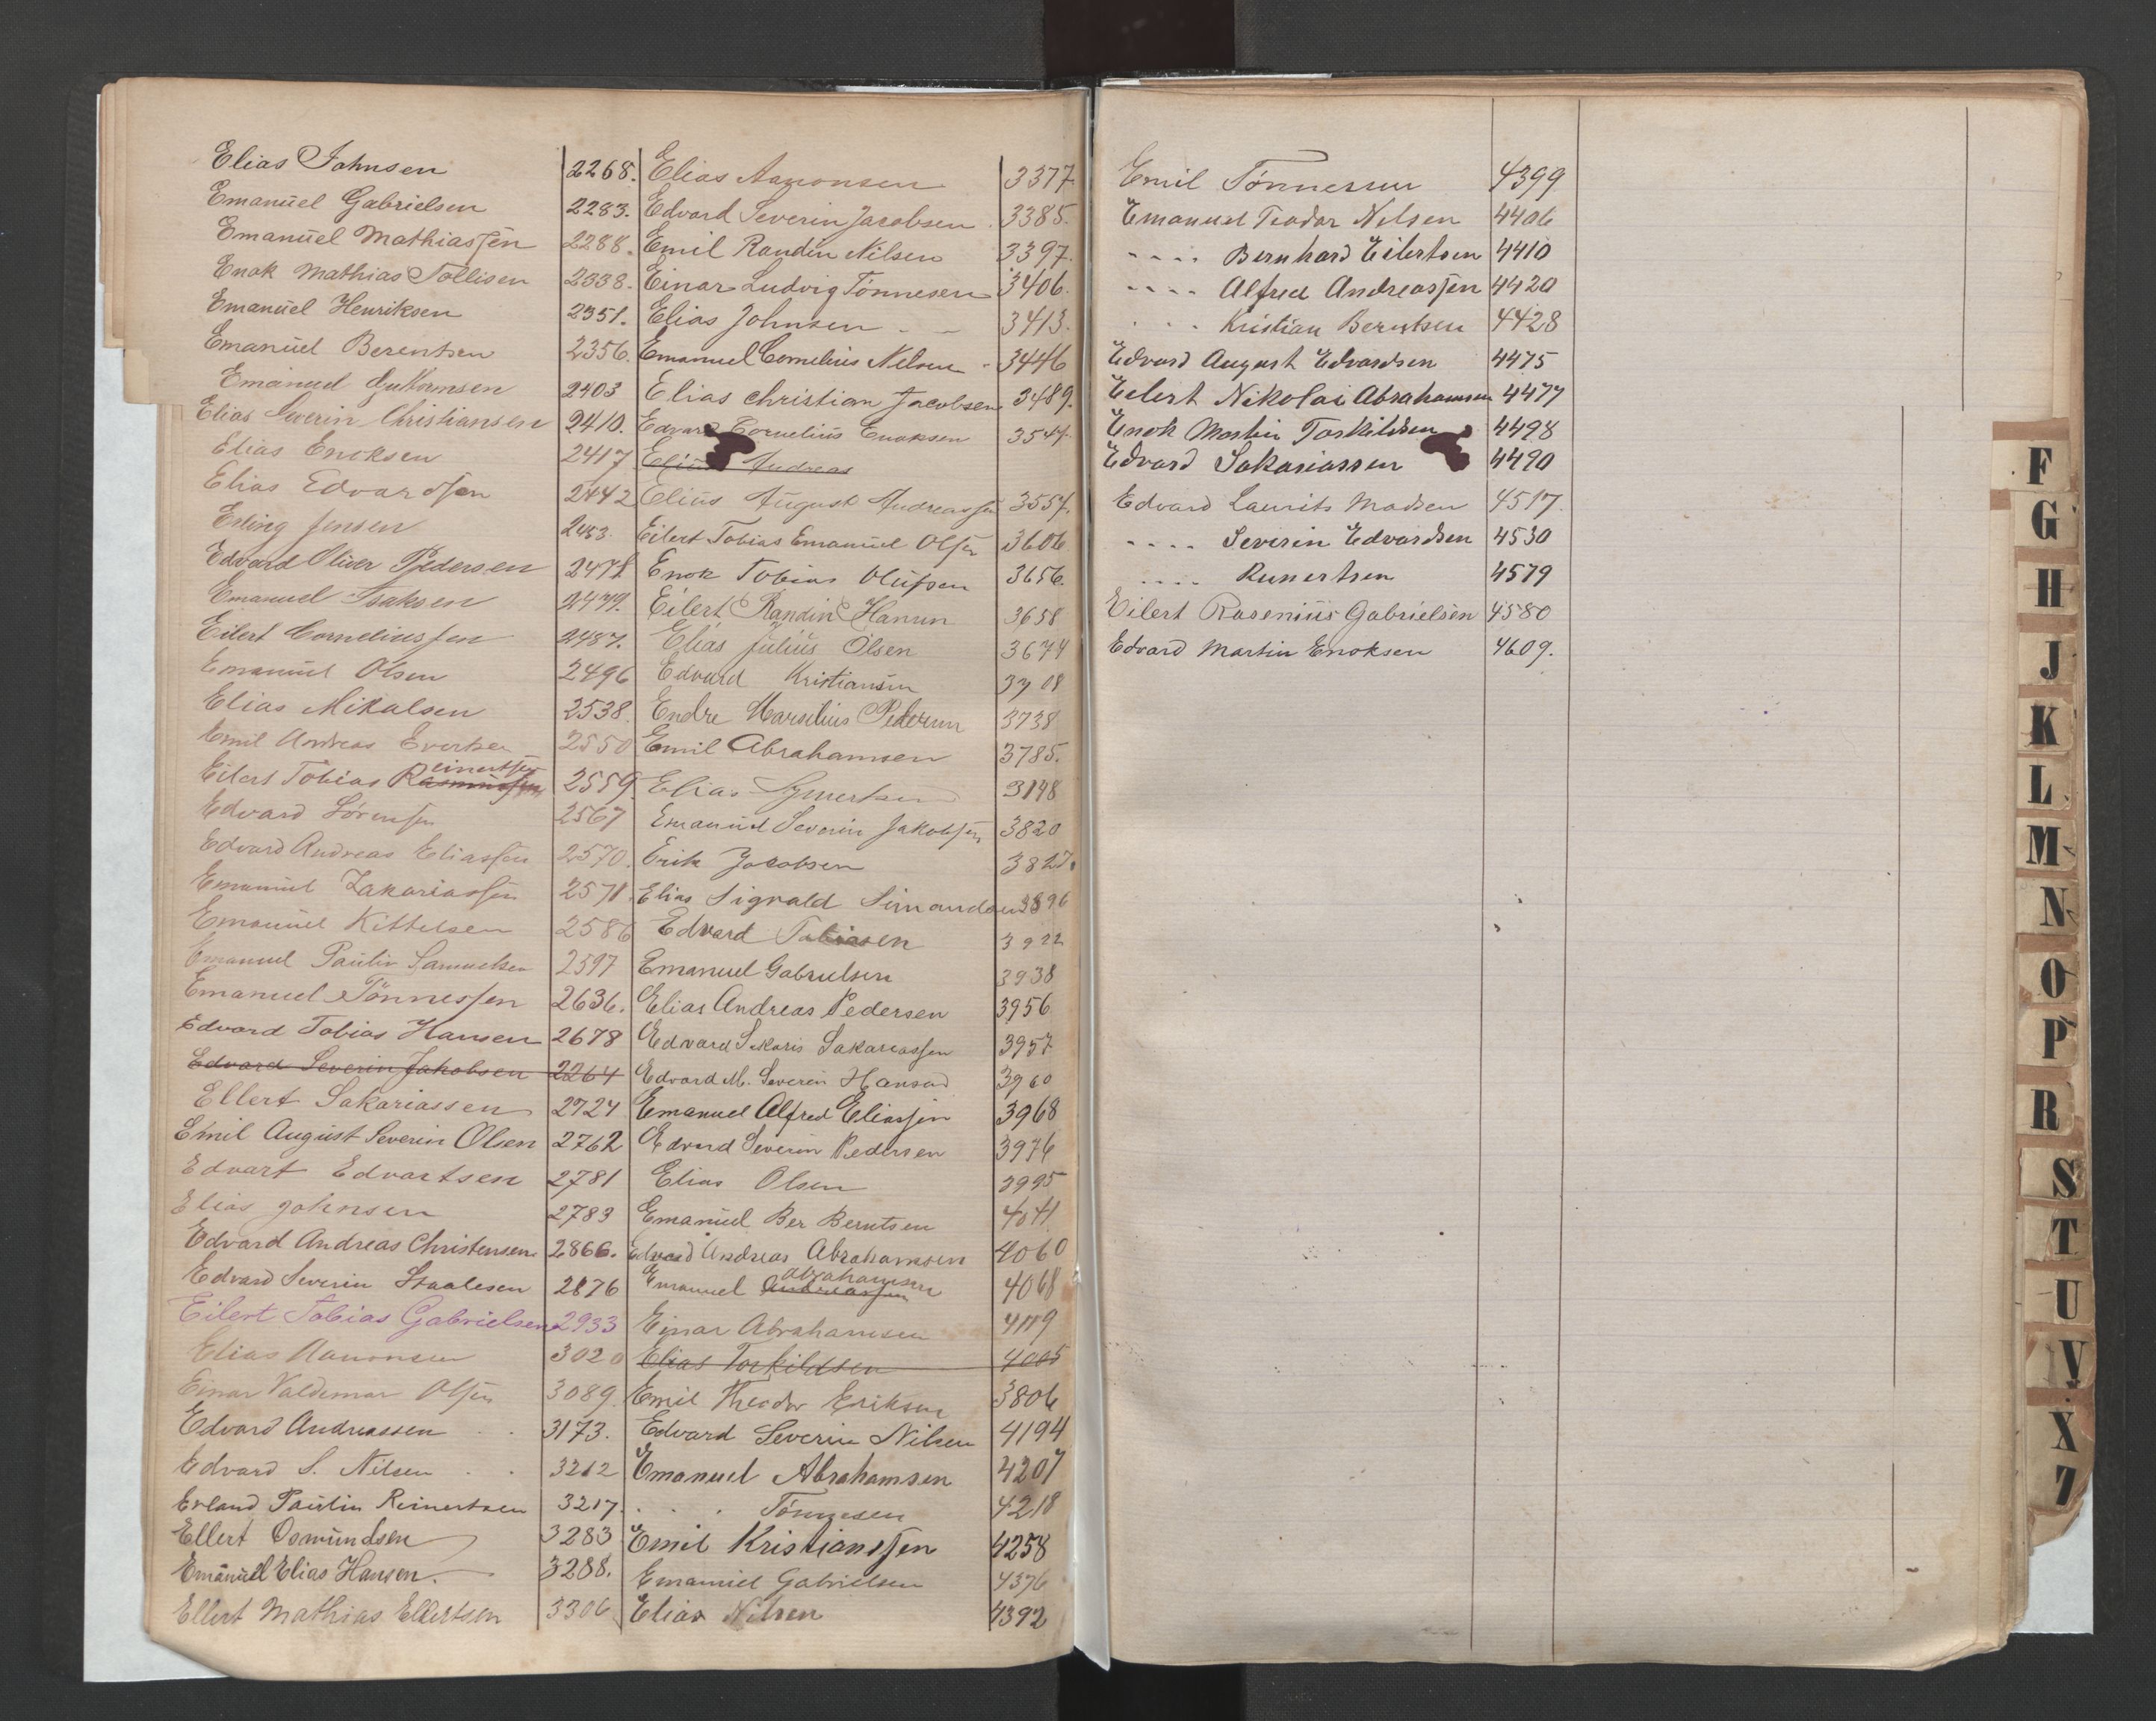 Elias Johnsen 2268.
Emanuel Gabrielsen 2283.
Emanuel Mathiassen 2288.
Enok Mathias Tollisen 2338.
Emanuel Henriksen 2351.
Emanuel Berentsen 2356.
Emanuel 2403
Elias Severin Christiansen 2410.
Elias Enoksen 2417
Elias Edvardsen 2442
Erling Jensen 2453.
Edvard Oliver Pedersen 2478
Emanuel Isaksen 2479.
Eilert Corneliussen 2487.
Emanuel Olsen 2496
Elias Mikalsen 2538.
Emil Andreas Evertsen 2550
Eilert Tobias Rasmussen einertsen 2559
Edvard Sørensen 2567
Edvard Andreas Eliassen 2570.
Emanuel Zakariassen 2571.
Emanuel Kittelsen 2586
Emanuel Paulin Samuelsen 2597
Emanuel Tönnessen 2636.
Edvard Tobias Hansen 2678
Edvard Severin Jakobsen 2264
Ellert Sakariassen 2724
Emil August Severin Olsen 2762
Edvart Edvartsen 2781
Elias Johnsen 2783
Edvard Andreas Christensen 2866.
Edvard Severin Staalesen 2876
Eilert Tobias Gabrielsen 2933
Elias Aanonsen 3020
Einar Valdemar Olsen 3089.
Edvard Andreassen 3173.
Edvard S. Nilsen 3212
Erland Paulin Reinertsen 3217.
Ellert Osmundsen 3283
Emanuel Elias Hansen. 3288.
Ellert Mathias Ellertsen 3306
Elias Aanonsen 3377
Edvard Severin Jacobsen. 3385.
Emil Randin Nilsen 3397.
Einar Ludvig Tönnesen 3406.
Elias Johnsen - - 3413.
Emanuel Cornelius Nilsen - 3446
Elias Christian Jacobsen 3489.
Edvard Cornelius Enoksen 3547.
Elius Andreas
Elius August Andreassen 3557.
Eilert Tobias Emanuel Olsen 3606
Enok Tobias Olufsen 3656.
Eilert Randin Hanun 3658
Elias Julius Olsen 3674
Edvard Kristiansen 3708
Endre Marselius Pedersen 3738
Emil Abrahamsen 3785.
Elias
Emanuel Severin Jakobsen 3820
Erik Jacobsen 3827.
Elias Sigvald Simondsen 3896
Edvard Tobiasen 3922
Emanuel Gabrielsen 3938
Elias Andreas Pedersen 3956
Edvard Sakaris Sakariassen 3957
Edvard M. Severin Hansen 3960
Emanuel Alfred Eliassen 3968
Edvard Severin Pedersen 3976
Elias Olsen 3995
Emanuel Ber Berntsen 4041
Edvard Andreas Abrahamsen 4060
Emanuel Andreassen Abrahamsen 4068
Einar Abrahamsen
Elias Torkildsen 4005
Emil Theodor Eriksen 3806
Edvard Severin Nilsen 4194
Emanuel Abrahamsen 4207
. . Tönnesen 4218
Emil Kristianssen 4258
Emanuel Gabrielsen 4376
Elias Nilsen 4392
Emil Tönnessen 4399
Emanuel Teodor Nilsen 4406
- - - - Bernhard Eilertsen 4410
- - - - Alfred Andreassen 4420
- - - Kristian Berntsen 4428
Edvard August Edvardsen 4475
Eilert Nikolai Abrahamsen 4477
Enok Martin Torkildsen 4498
Edvard Sakariassen 4490
Edvard Laurits Madsen 4517.
- - - - Severin Edvardsen 4530
- - - - Runertsen 4579
Eilert Rasenius Gabrielsen 4580
Edvard Martin Enoksen 4609.
F
G
H
J
K
L
M
N
O
P
R
S
T
U
V
X
Z